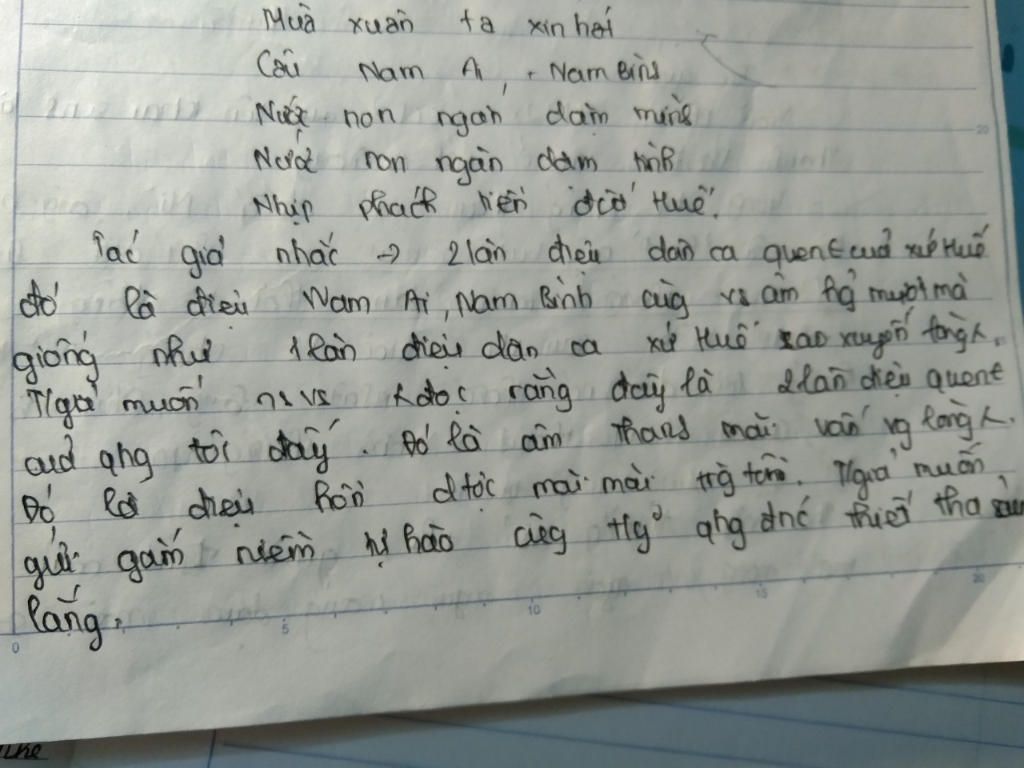 Mùa xuân ta xin hát
Câu Nam Ai, Nam Bình
Nước non ngàn dặm mình
Nước non ngàn dặm tình
Nhịp phách tiền đất Huế.
Tác giả nhắc → 2 làn điệu dân ca quen t của xứ Huế
đó là điệu Nam Ai, Nam Bình cùg vs âm hg mượt mà
giống như 1 làn điệu dân ca xứ Huế xao xuyến lòng
T/giả muốn ns vs đọc rằng đây là 2 làn điệu quen t
của qhg tôi đấy. Đó là âm thanh mãi vấn vg lòng
Đó là điệu hồn dtộc mãi mãi trg tôi. T/giả muốn
gửi gắm niềm tự hào cùg qhg đnc thiết tha sâu
lắng.